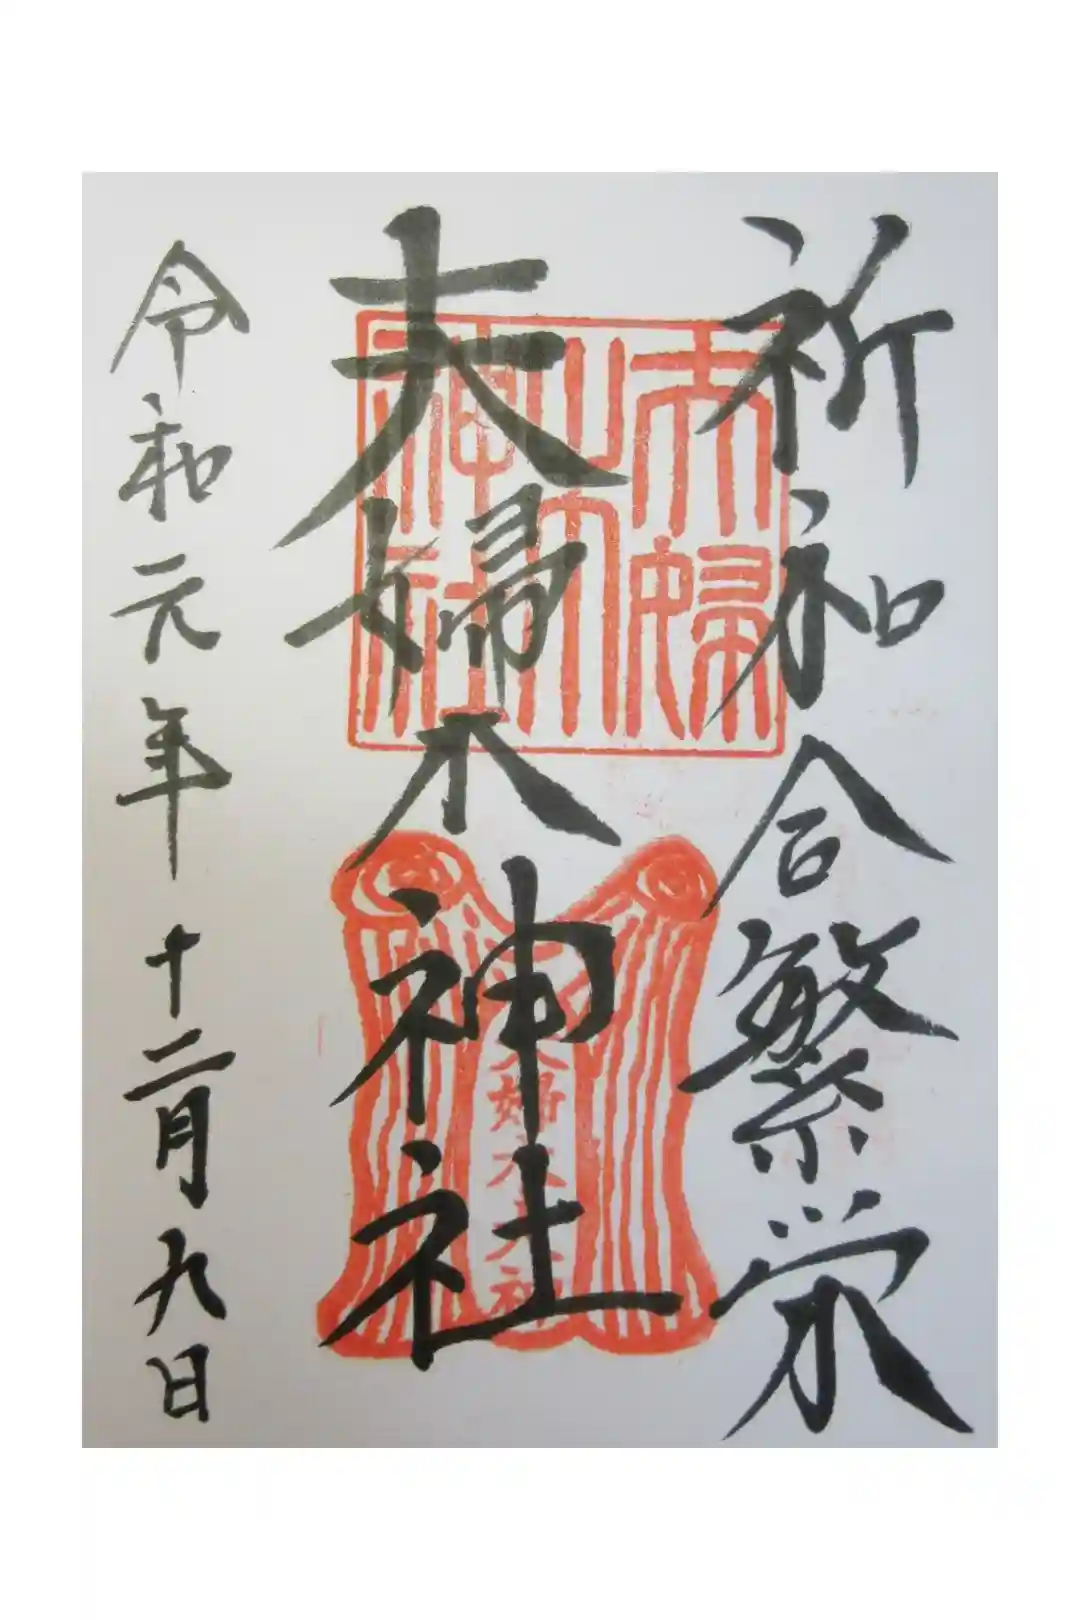 祈和合繁栄
夫婦木神社
夫婦
木
神社
夫婦木大神
令和元年十二月九日